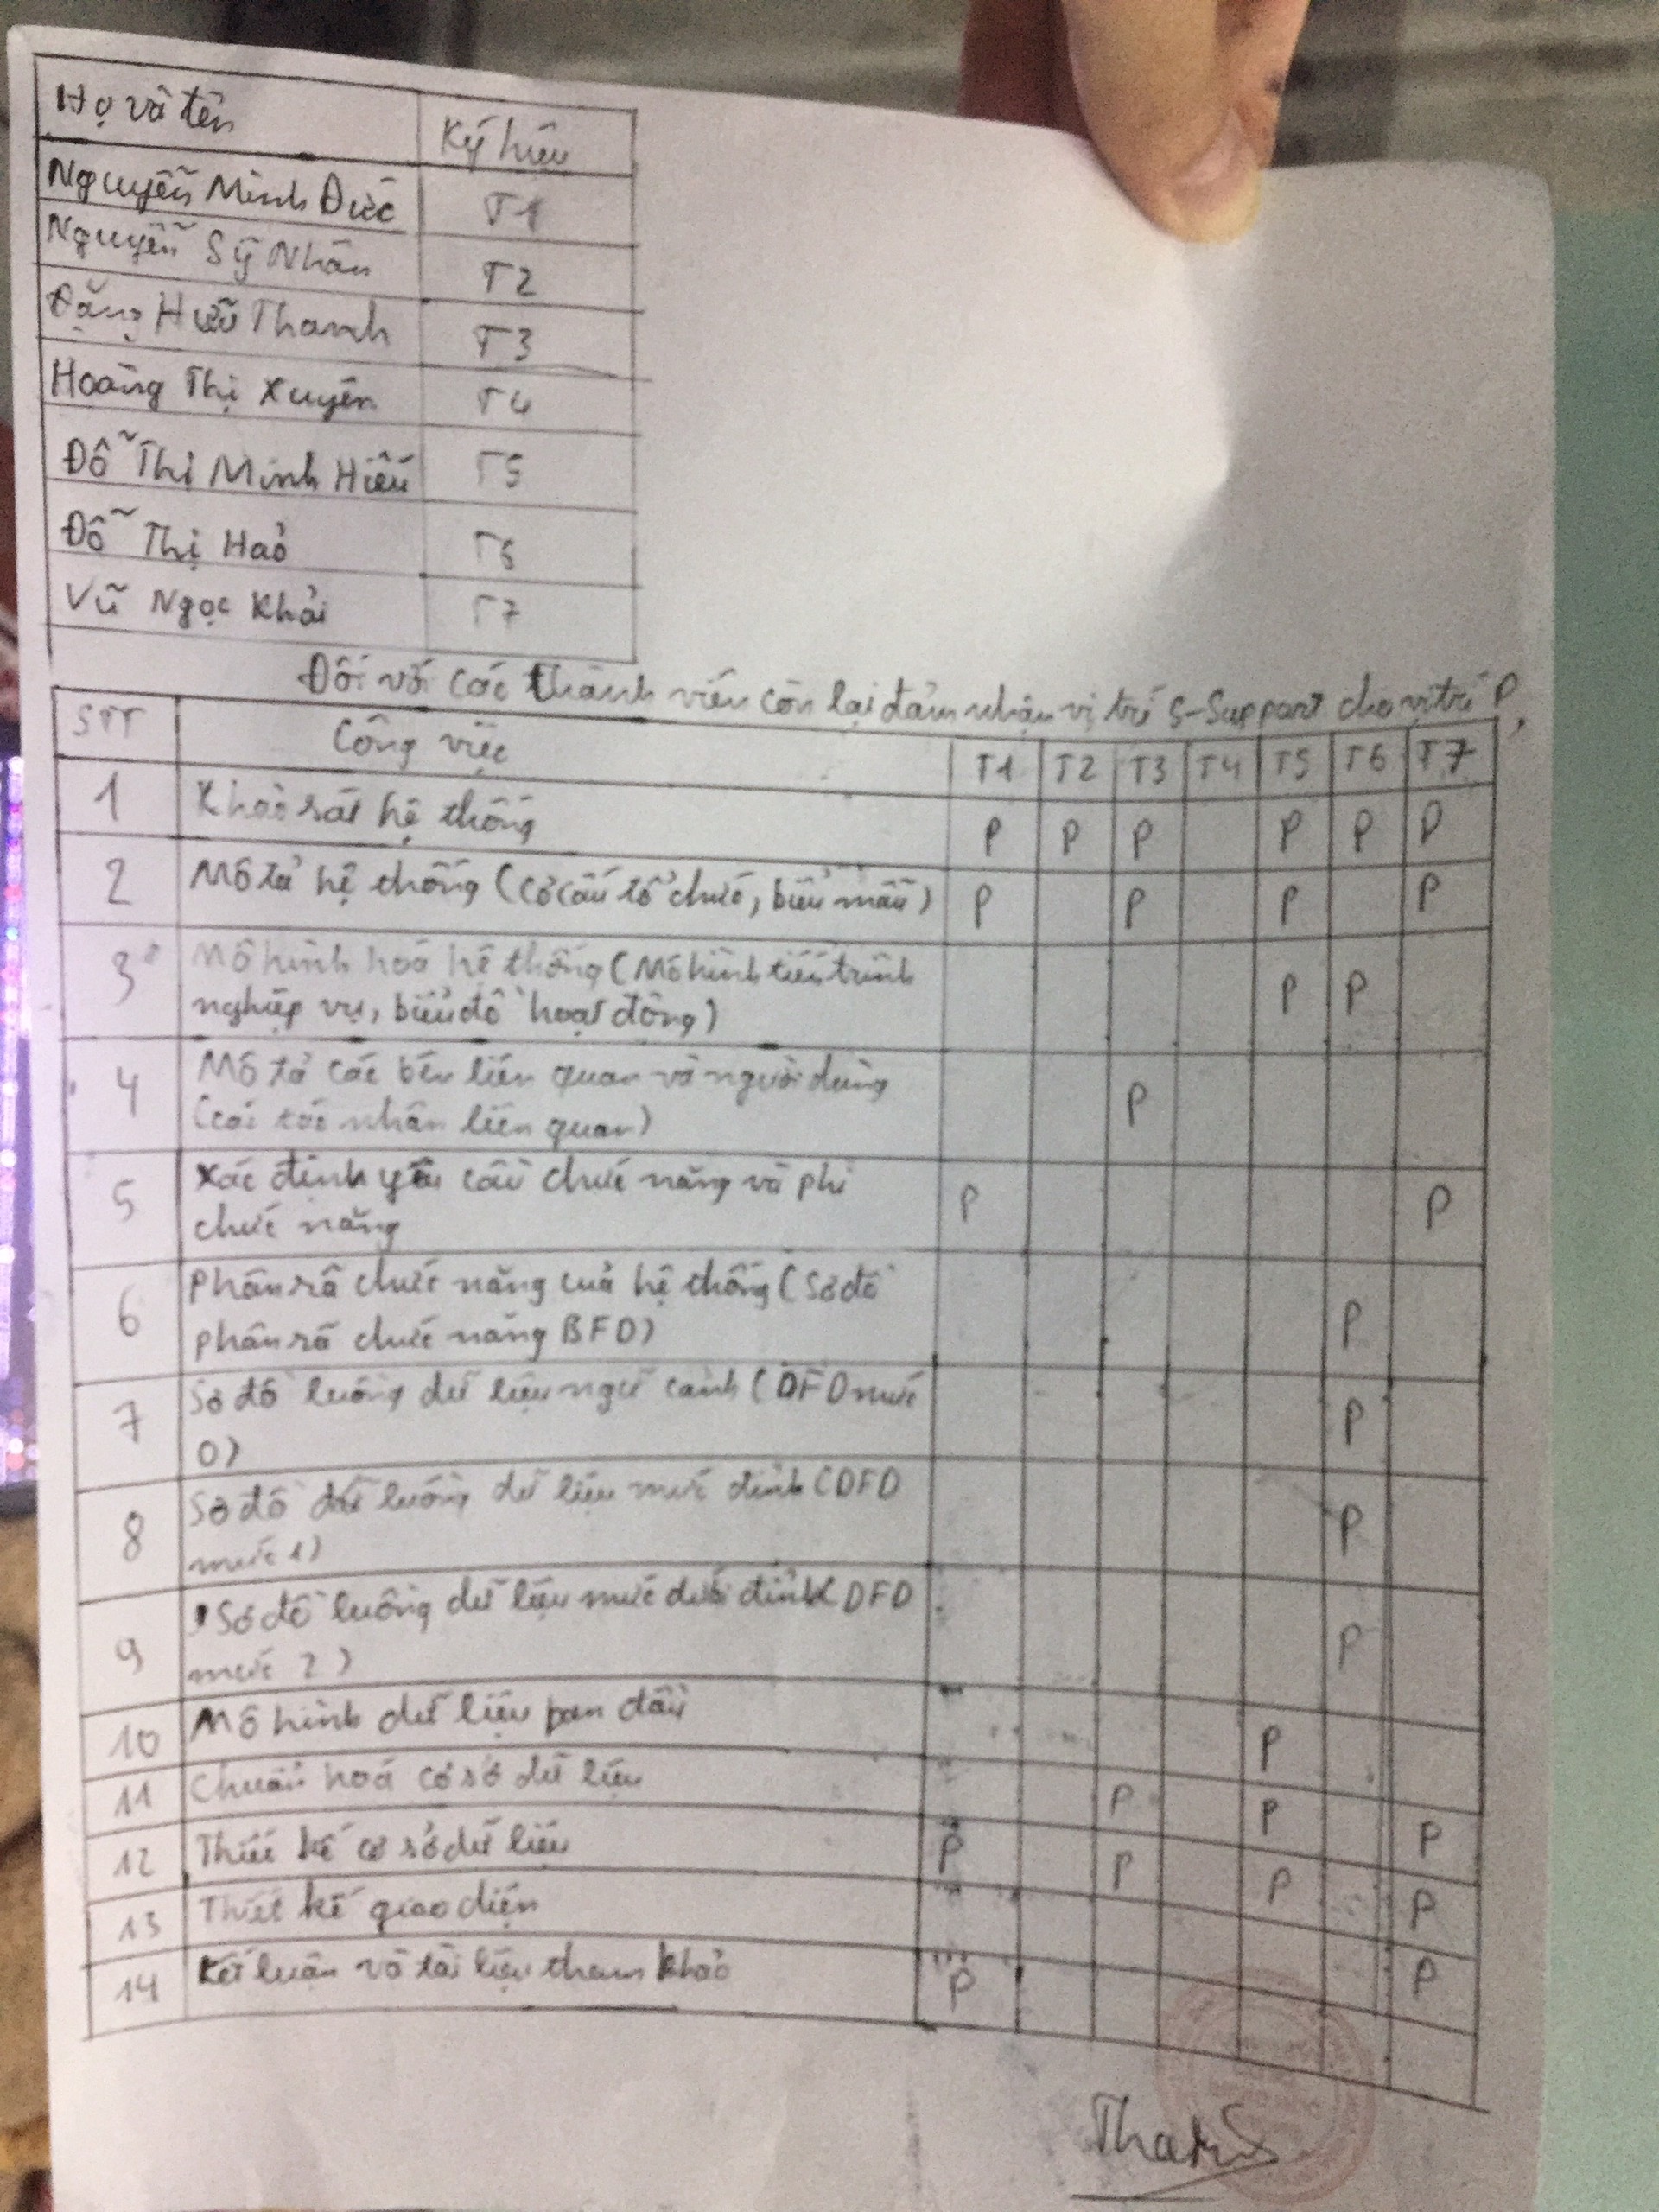 Họ và tên Ký hiệu
Nguyễn Minh Đức T1
Nguyễn Sỹ Nhân T2
Đặng Hữu Thanh T3
Hoàng Thị Xuyên T4
Đỗ Thị Minh Hiếu T5
Đỗ Thị Hảo T6
Vũ Ngọc Khải T7
Đối với các thành viên còn lại đảm nhận vị trí S-Support cho vị trí P.
STT Công việc T1 T2 T3 T4 T5 T6 T7
1 Khảo sát hệ thống P P P P P P
2 Mô tả hệ thống (cơ cấu tổ chức, biểu mẫu) P P P P
3 Mô hình hoá hệ thống (Mô hình tiến trình
nghiệp vụ, biểu đồ hoạt động) P P
4 Mô tả các bên liên quan và người dùng
(các tác nhân liên quan) P
5 Xác định yêu cầu chức năng và phi
chức năng P P
6 Phân rã chức năng của hệ thống (Sơ đồ
phân rã chức năng BFD) P
7 Sơ đồ luồng dữ liệu ngữ cảnh (DFD mức
0) P
8 Sơ đồ luồng dữ liệu mức đỉnh (DFD
mức 1) P
9 Sơ đồ luồng dữ liệu mức dưới đỉnh (DFD
mức 2) P
10 Mô hình dữ liệu ban đầu P
11 Chuẩn hoá cơ sở dữ liệu P P P
12 Thiết kế cơ sở dữ liệu P P P P
13 Thiết kế giao diện P
14 Kết luận và tài liệu tham khảo P
Thanh